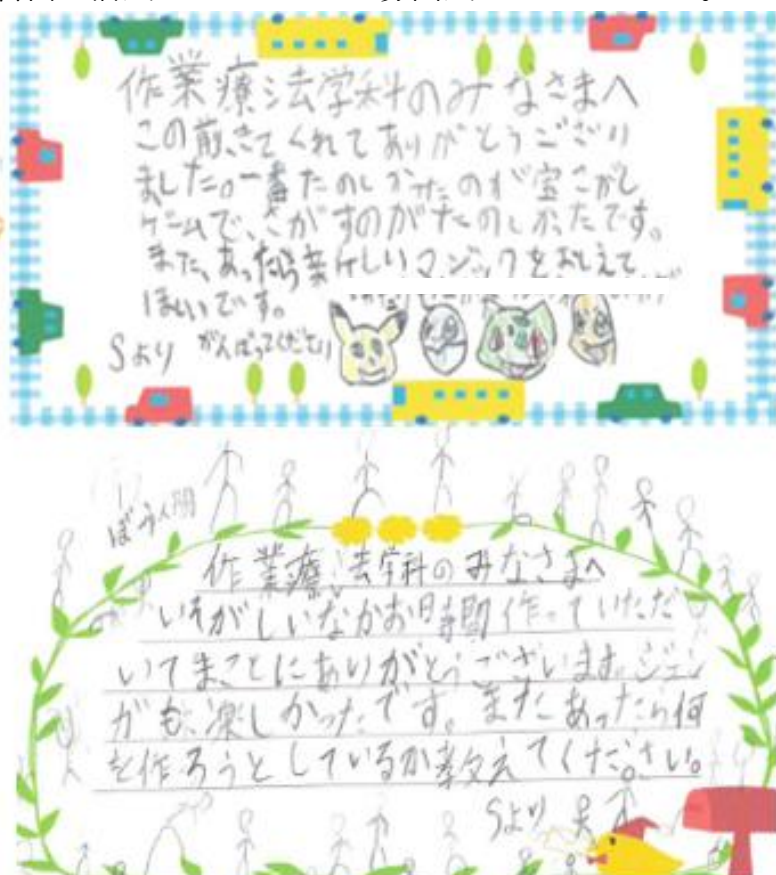 作業療法学科のみなさまへ
この前、きてくれてありがとうござい
ました。一番たのしかったのが宝さがし
ゲームで、さがすのがたのしかったです。
また、あったら新しいマジックをおしえて
ほしいです。
Sより がんばってください
ぼう人間
作業療法学科のみなさまへ
いそがしいなかお時間作っていただ
いてまことにありがとうございます。ジェン
ガも、楽しかったです。またあったら何
を作ろうとしているか教えてください。
Sより